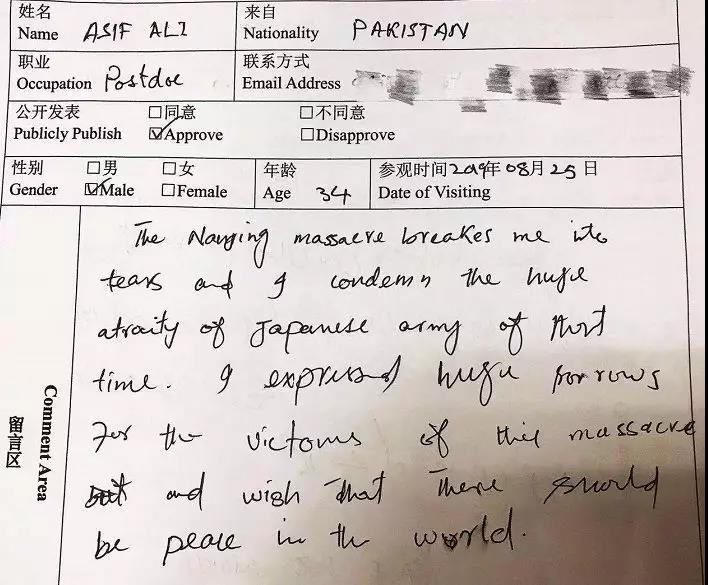 姓名 来自
Name ASIF ALI Nationality PAKISTAN
职业 联系方式
Occupation Postdoc Email Address
公开发表 □同意 □不同意
Publicly Publish ☑Approve □Disapprove
性别 □男 □女 年龄 参观时间2019年08月25日
Gender ☑Male □Female Age 34 Date of Visiting
The Nanjing massacre breakes me into
tears and I condemn the huge
atrocity of Japanese army of that
time. I expressed huge sorrows
for the victoms of this massacre
and wish that There should
be peace in the world.
Comment Area
留言区